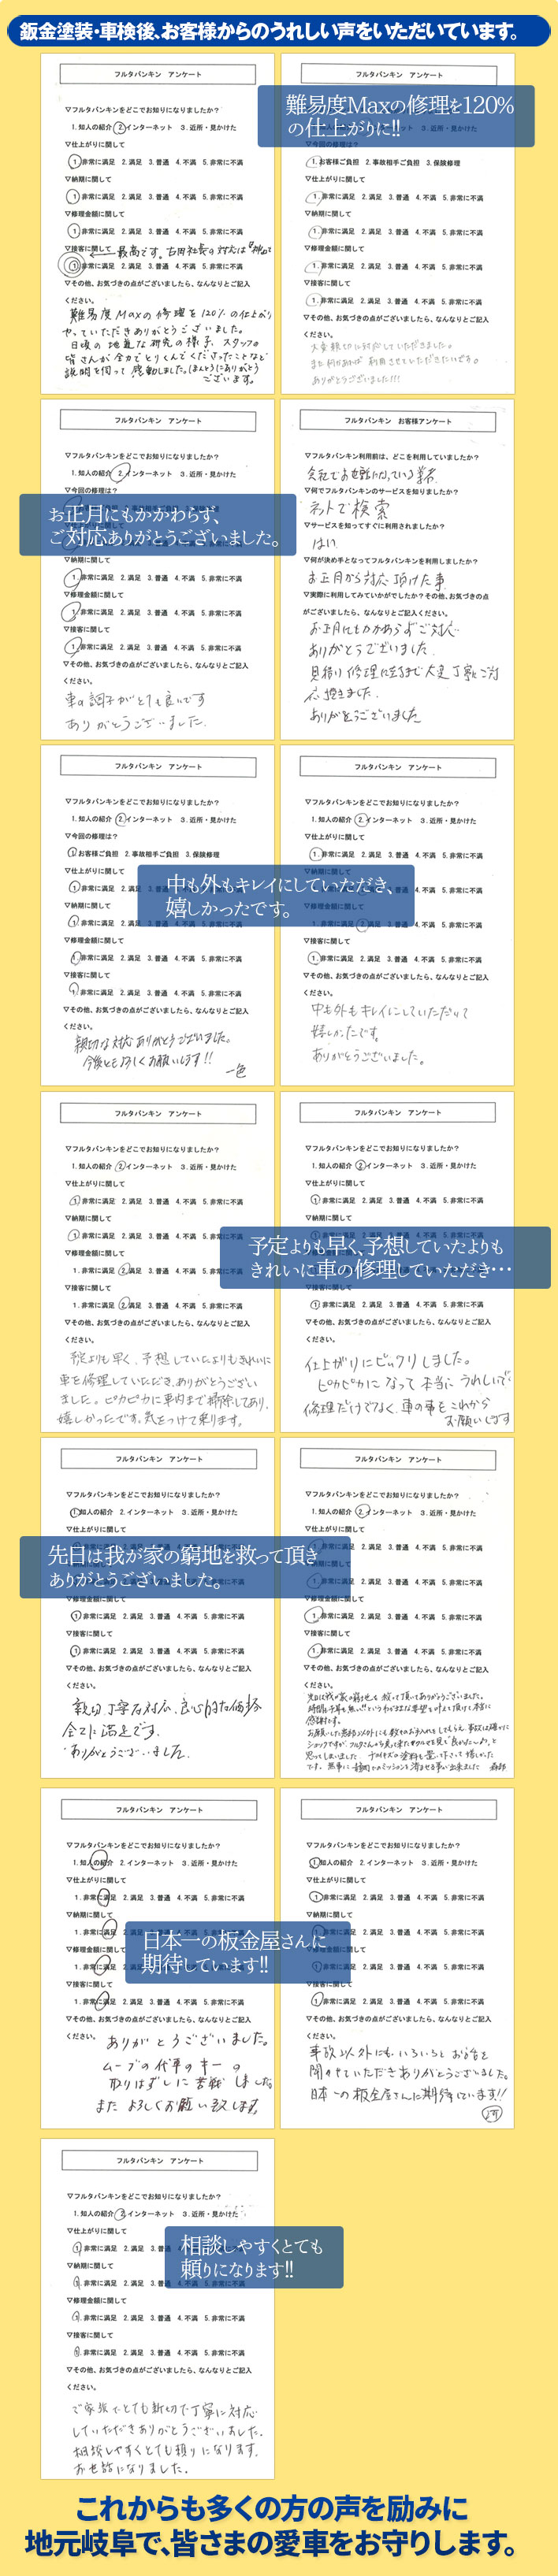 鈑金塗装・車検後、お客様からのうれしい声をいただいています。
フルタバンキン　アンケート
▽フルタバンキンをどこでお知りになりましたか？
1. 知人の紹介　2. インターネット　3. 近所・見かけた
▽仕上がりに関して
1. 非常に満足　2. 満足　3. 普通　4. 不満　5. 非常に不満
▽納期に関して
1. 非常に満足　2. 満足　3. 普通　4. 不満　5. 非常に不満
▽修理金額に関して
1. 非常に満足　2. 満足　3. 普通　4. 不満　5. 非常に不満
▽接客に関して
最高です。古田社長の対応は
1. 非常に満足　2. 満足　3. 普通　4. 不満　5. 非常に不満
▽その他、お気づきの点がございましたら、なんなりとご記入
ください。
難易度Maxの修理を120%の仕上がり
やっていただきありがとうございました。
日頃の地道な研究の様子、スタッフの
皆さんが全力でとりくんでくださったことなど
説明を伺って感動しました。ほんとうにありがとう
ございます。
難易度Maxの修理を120%
の仕上がりに!!
1. お客様ご負担　2. 事故相手ご負担　3. 保険修理
▽仕上がりに関して
1. 非常に満足　2. 満足　3. 普通　4. 不満　5. 非常に不満
▽納期に関して
1. 非常に満足　2. 満足　3. 普通　4. 不満　5. 非常に不満
▽修理金額に関して
1. 非常に満足　2. 満足　3. 普通　4. 不満　5. 非常に不満
▽接客に関して
1. 非常に満足　2. 満足　3. 普通　4. 不満　5. 非常に不満
▽その他、お気づきの点がございましたら、なんなりとご記入
ください。
大変親切に対応していただきました。
また何かあれば利用させていただきたいです。
ありがとうございました!!!
フルタバンキン　アンケート
▽フルタバンキンをどこでお知りになりましたか？
1. 知人の紹介　2. インターネット　3. 近所・見かけた
▽今回の修理は？
お正月にもかかわらず、
ご対応ありがとうございました。
▽納期に関して
1. 非常に満足　2. 満足　3. 普通　4. 不満　5. 非常に不満
▽修理金額に関して
1. 非常に満足　2. 満足　3. 普通　4. 不満　5. 非常に不満
▽接客に関して
1. 非常に満足　2. 満足　3. 普通　4. 不満　5. 非常に不満
▽その他、お気づきの点がございましたら、なんなりとご記入
ください。
車の調子がとても良いです
ありがとうございました。
フルタバンキン　お客様アンケート
▽フルタバンキン利用前は、どこを利用していましたか？
会社でお世話になっている業者
▽何でフルタバンキンのサービスを知りましたか？
ネットで検索
▽サービスを知ってすぐに利用されましたか？
はい
▽何が決め手となってフルタバンキンを利用しましたか？
お正月から対応頂けた事
▽実際に利用してみていかがでしたか？その他、お気づきの点
がございましたら、なんなりとご記入ください。
お正月にもかかわらずご対応
ありがとうございました
見積り修理に至るまで大変丁寧にご対
応頂きました。
ありがとうございました
フルタバンキン　アンケート
▽フルタバンキンをどこでお知りになりましたか？
1. 知人の紹介　2. インターネット　3. 近所・見かけた
▽今回の修理は？
1. お客様ご負担　2. 事故相手ご負担　3. 保険修理
▽仕上がりに関して
▽納期に関して
1. 非常に満足　2. 満足　3. 普通　4. 不満　5. 非常に不満
▽修理金額に関して
1. 非常に満足　2. 満足　3. 普通　4. 不満　5. 非常に不満
▽接客に関して
1. 非常に満足　2. 満足　3. 普通　4. 不満　5. 非常に不満
▽その他、お気づきの点がございましたら、なんなりとご記入
ください。
親切な対応ありがとうございました。
今後とも宜しくお願いします!!
一色
フルタバンキン　アンケート
▽フルタバンキンをどこでお知りになりましたか？
1. 知人の紹介　2. インターネット　3. 近所・見かけた
▽仕上がりに関して
1. 非常に満足　2. 満足　3. 普通　4. 不満　5. 非常に不満
中も外もキレイにしていただき、
嬉しかったです。
▽接客に関して
1. 非常に満足　2. 満足　3. 普通　4. 不満　5. 非常に不満
▽その他、お気づきの点がございましたら、なんなりとご記入
ください。
中も外もキレイにしていただいて
嬉しかったです。
ありがとうございました。
フルタバンキン　アンケート
▽フルタバンキンをどこでお知りになりましたか？
1. 知人の紹介　2. インターネット　3. 近所・見かけた
▽仕上がりに関して
1. 非常に満足　2. 満足　3. 普通　4. 不満　5. 非常に不満
▽納期に関して
1. 非常に満足　2. 満足　3. 普通　4. 不満　5. 非常に不満
▽修理金額に関して
1. 非常に満足　2. 満足　3. 普通　4. 不満　5. 非常に不満
▽接客に関して
1. 非常に満足　2. 満足　3. 普通　4. 不満　5. 非常に不満
▽その他、お気づきの点がございましたら、なんなりとご記入
ください。
予定よりも早く、予想していたよりもきれいに
車を修理していただき、ありがとうござい
ました。ピカピカに車内まで掃除してあり、
嬉しかったです。気をつけて乗ります。
フルタバンキン　アンケート
▽フルタバンキンをどこでお知りになりましたか？
1. 知人の紹介　2. インターネット　3. 近所・見かけた
▽仕上がりに関して
1. 非常に満足　2. 満足　3. 普通　4. 不満　5. 非常に不満
▽納期に関して
予定よりも早く、予想していたよりも
きれいに車の修理していただき…
1. 非常に満足　2. 満足　3. 普通　4. 不満　5. 非常に不満
▽その他、お気づきの点がございましたら、なんなりとご記入
ください。
仕上がりにビックリしました。
ピカピカになって本当にうれしいです
修理だけでなく、車の事をこれから
お願いします
フルタバンキン　アンケート
▽フルタバンキンをどこでお知りになりましたか？
1. 知人の紹介　2. インターネット　3. 近所・見かけた
▽仕上がりに関して
先日は我が家の窮地を救って頂き
ありがとうございました。
▽修理金額に関して
1. 非常に満足　2. 満足　3. 普通　4. 不満　5. 非常に不満
▽接客に関して
1. 非常に満足　2. 満足　3. 普通　4. 不満　5. 非常に不満
▽その他、お気づきの点がございましたら、なんなりとご記入
ください。
親切丁寧な対応、良心的な価格
全てに満足です。
ありがとうございました。
フルタバンキン　アンケート
▽フルタバンキンをどこでお知りになりましたか？
1. 知人の紹介　2. インターネット　3. 近所・見かけた
▽仕上がりに関して
▽修理金額に関して
1. 非常に満足　2. 満足　3. 普通　4. 不満　5. 非常に不満
▽接客に関して
1. 非常に満足　2. 満足　3. 普通　4. 不満　5. 非常に不満
▽その他、お気づきの点がございましたら、なんなりとご記入
ください。
先日は我が家の窮地を救って頂いてありがとうございました。
フルタバンキン　アンケート
▽フルタバンキンをどこでお知りになりましたか？
1. 知人の紹介　2. インターネット　3. 近所・見かけた
▽仕上がりに関して
1. 非常に満足　2. 満足　3. 普通　4. 不満　5. 非常に不満
▽納期に関して
▽修理金額に関して
▽接客に関して
1. 非常に満足　2. 満足　3. 普通　4. 不満　5. 非常に不満
▽その他、お気づきの点がございましたら、なんなりとご記入
ください。
ありがとうございました。
ムーブの代車のキーの
取りはずしに苦戦しました。
またよろしくお願い致します。
フルタバンキン　アンケート
▽フルタバンキンをどこでお知りになりましたか？
1. 知人の紹介　2. インターネット　3. 近所・見かけた
▽仕上がりに関して
1. 非常に満足　2. 満足　3. 普通　4. 不満　5. 非常に不満
▽納期に関して
日本一の板金屋さんに
期待しています!!
1. 非常に満足　2. 満足　3. 普通　4. 不満　5. 非常に不満
▽その他、お気づきの点がございましたら、なんなりとご記入
ください。
事故以外にも、いろいろとお話を
聞かせていただきありがとうございました。
日本一の板金屋さんに期待しています!!
フルタバンキン　アンケート
▽フルタバンキンをどこでお知りになりましたか？
1. 知人の紹介　2. インターネット　3. 近所・見かけた
▽仕上がりに関して
相談しやすくとても
頼りになります!!
▽納期に関して
1. 非常に満足　2. 満足　3. 普通　4. 不満　5. 非常に不満
▽修理金額に関して
1. 非常に満足　2. 満足　3. 普通　4. 不満　5. 非常に不満
▽接客に関して
1. 非常に満足　2. 満足　3. 普通　4. 不満　5. 非常に不満
▽その他、お気づきの点がございましたら、なんなりとご記入
ください。
ご家族でとても親切で丁寧に対応
していただきありがとうございました。
相談しやすくとても頼りになります。
お世話になりました。
これからも多くの方の声を励みに
地元岐阜で、皆さまの愛車をお守りします。